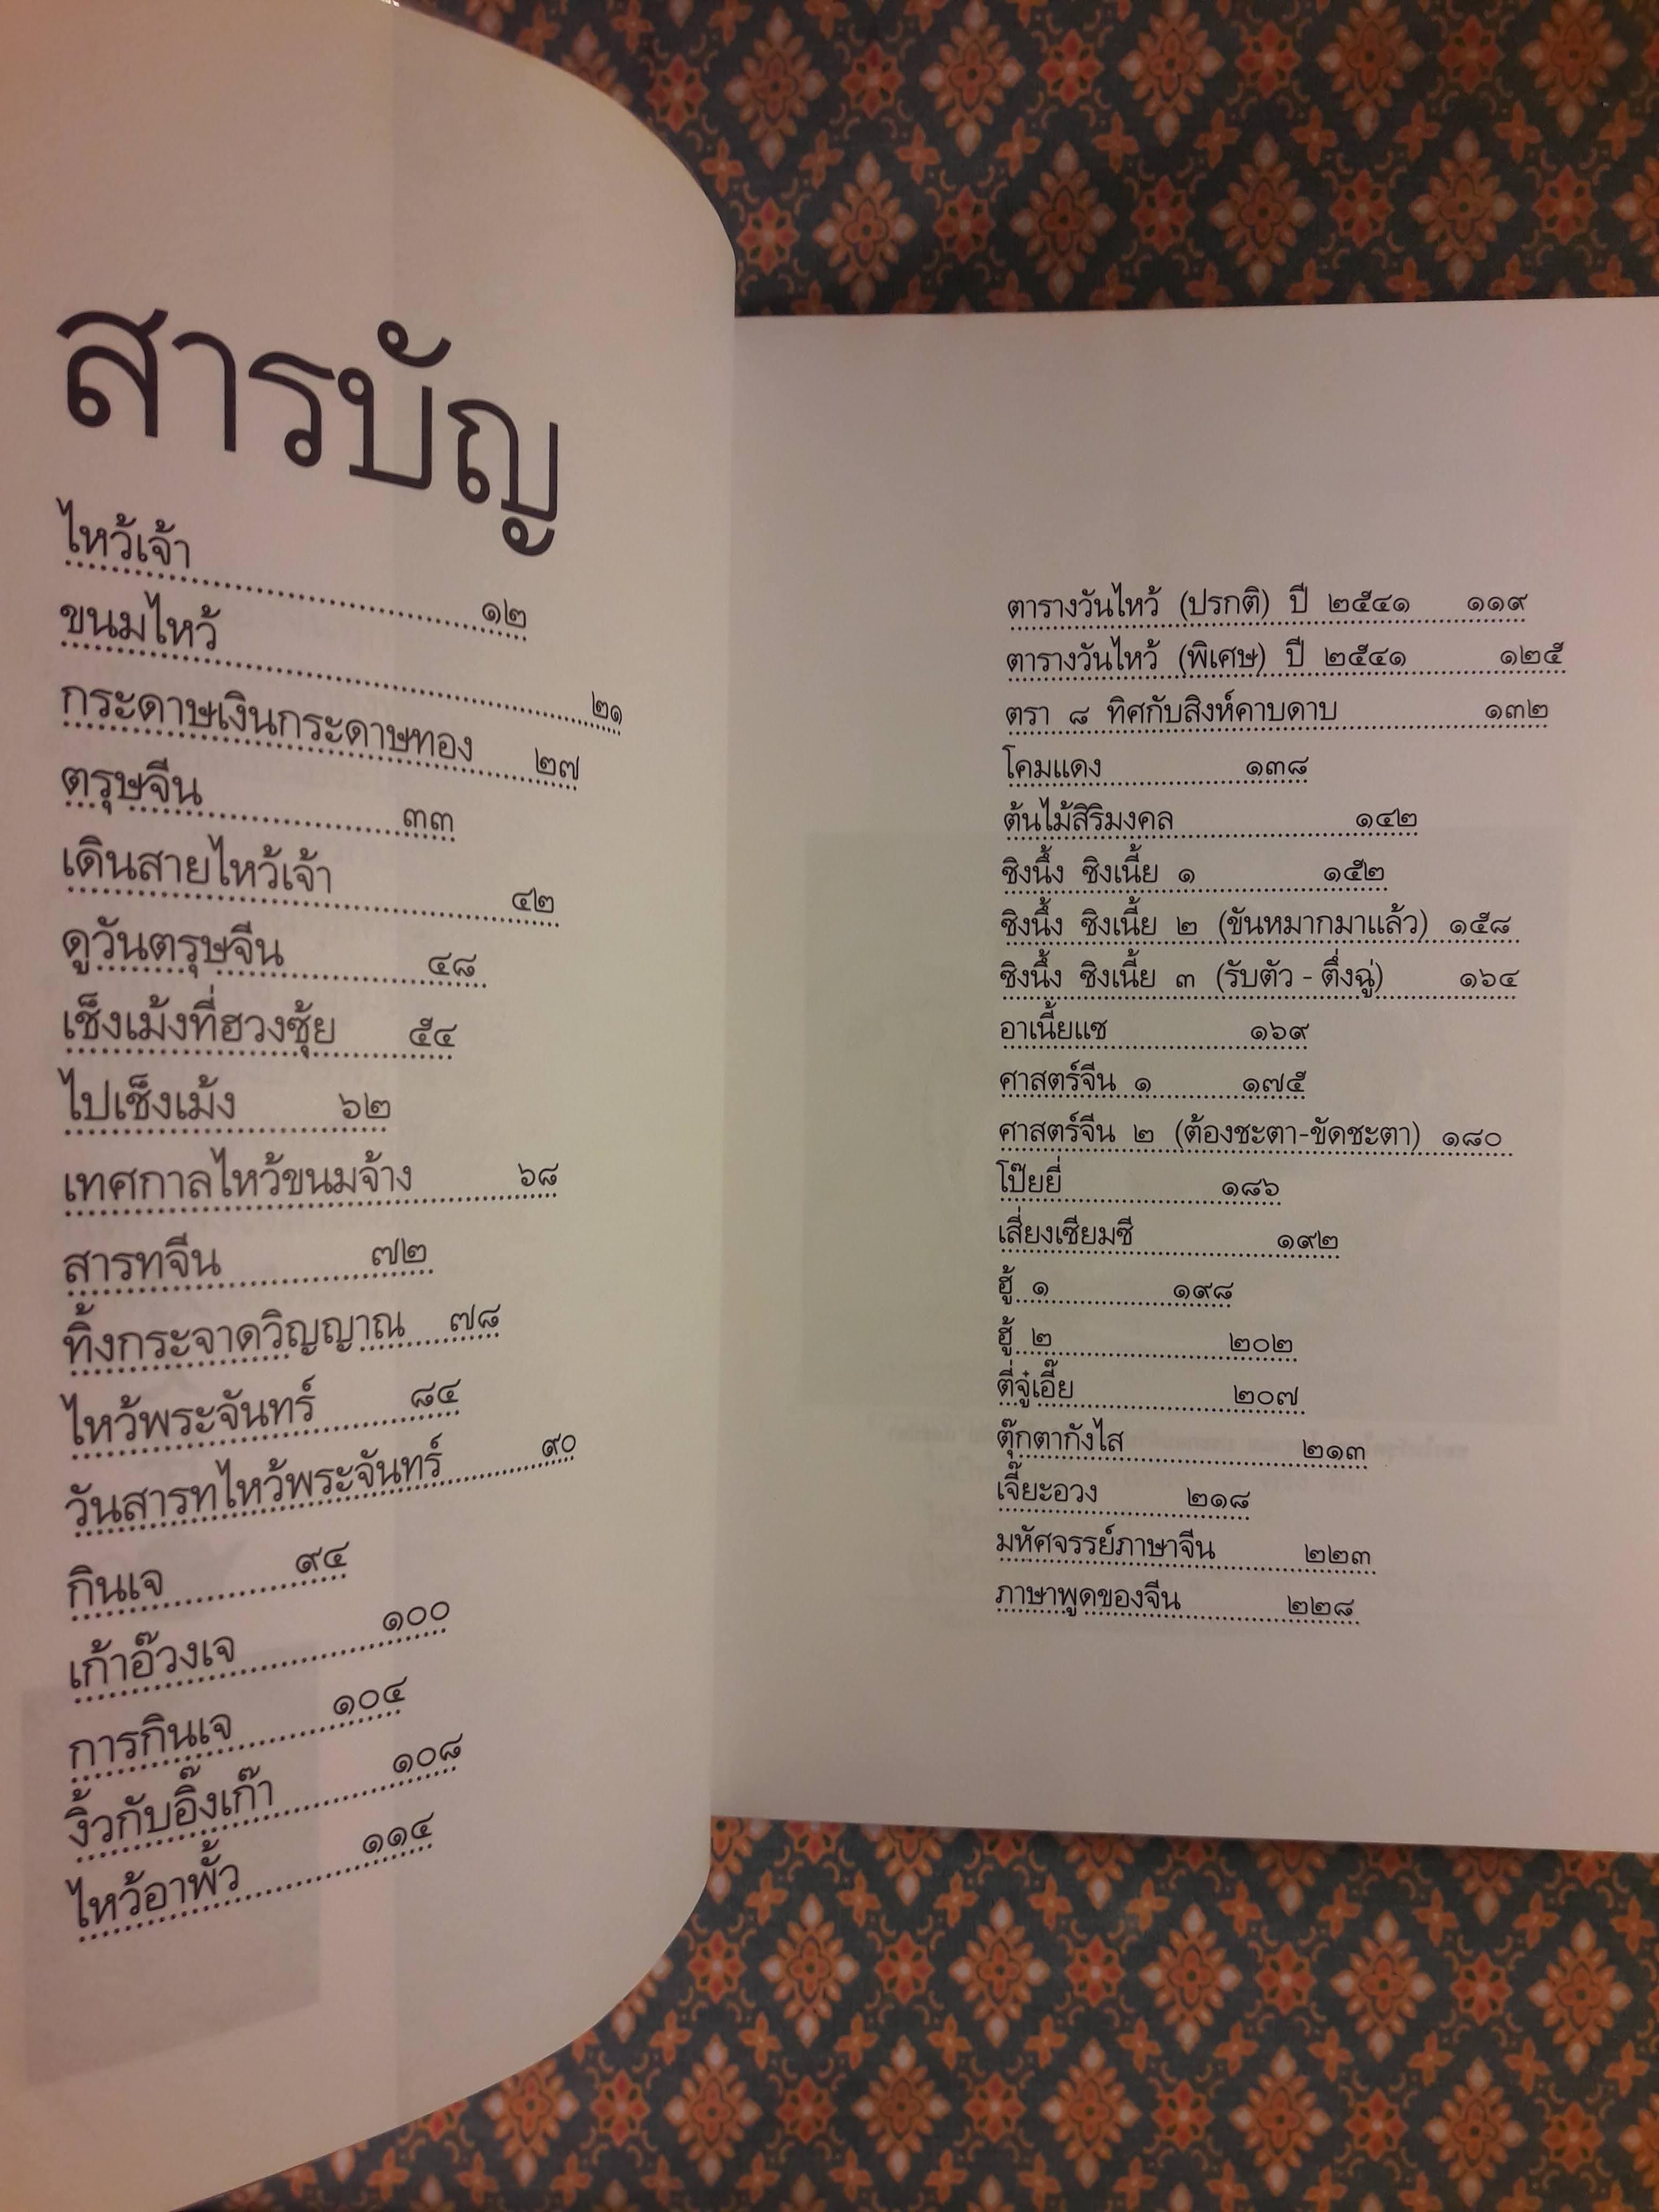 สารบัญ
ไหว้เจ้า ๑๒
ขนมไหว้ ๒๑
กระดาษเงินกระดาษทอง ๒๗
ตรุษจีน ๓๓
เดินสายไหว้เจ้า ๔๒
ดูวันตรุษจีน ๔๘
เช็งเม้งที่ฮวงซุ้ย ๕๔
ไปเช็งเม้ง ๖๒
เทศกาลไหว้ขนมจ้าง ๖๘
สารทจีน ๗๒
ทิ้งกระจาดวิญญาณ ๗๘
ไหว้พระจันทร์ ๘๔
วันสารทไหว้พระจันทร์ ๙๐
กินเจ ๙๔
เก้าอ๊วงเจ ๑๐๐
การกินเจ ๑๐๔
งิ้วกับอิ๊งเก๊า ๑๐๘
ไหว้อาพั้ว ๑๑๔
ตารางวันไหว้ (ปรกติ) ปี ๒๕๔๑ ๑๑๙
ตารางวันไหว้ (พิเศษ) ปี ๒๕๔๑ ๑๒๕
ตรา ๘ ทิศกับสิงห์คาบดาบ ๑๓๒
โคมแดง ๑๓๘
ต้นไม้สิริมงคล ๑๔๒
ซิงนึ้ง ซิงเนี้ย ๑ ๑๕๒
ซิงนึ้ง ซิงเนี้ย ๒ (ขันหมากมาแล้ว) ๑๕๘
ซิงนึ้ง ซิงเนี้ย ๓ (รับตัว - ตึ่งฉู่) ๑๖๔
อาเนี้ยแซ ๑๖๙
ศาสตร์จีน ๑ ๑๗๕
ศาสตร์จีน ๒ (ต้องชะตา-ขัดชะตา) ๑๘๐
โป๊ยยี่ ๑๘๖
เสี่ยงเซียมซี ๑๙๒
ฮู้ ๑ ๑๙๘
ฮู้ ๒ ๒๐๒
ตี่จู๋เอี๊ย ๒๐๗
ตุ๊กตากังไส ๒๑๓
เจี๊ยะอวง ๒๑๘
มหัศจรรย์ภาษาจีน ๒๒๓
ภาษาพูดของจีน ๒๒๘